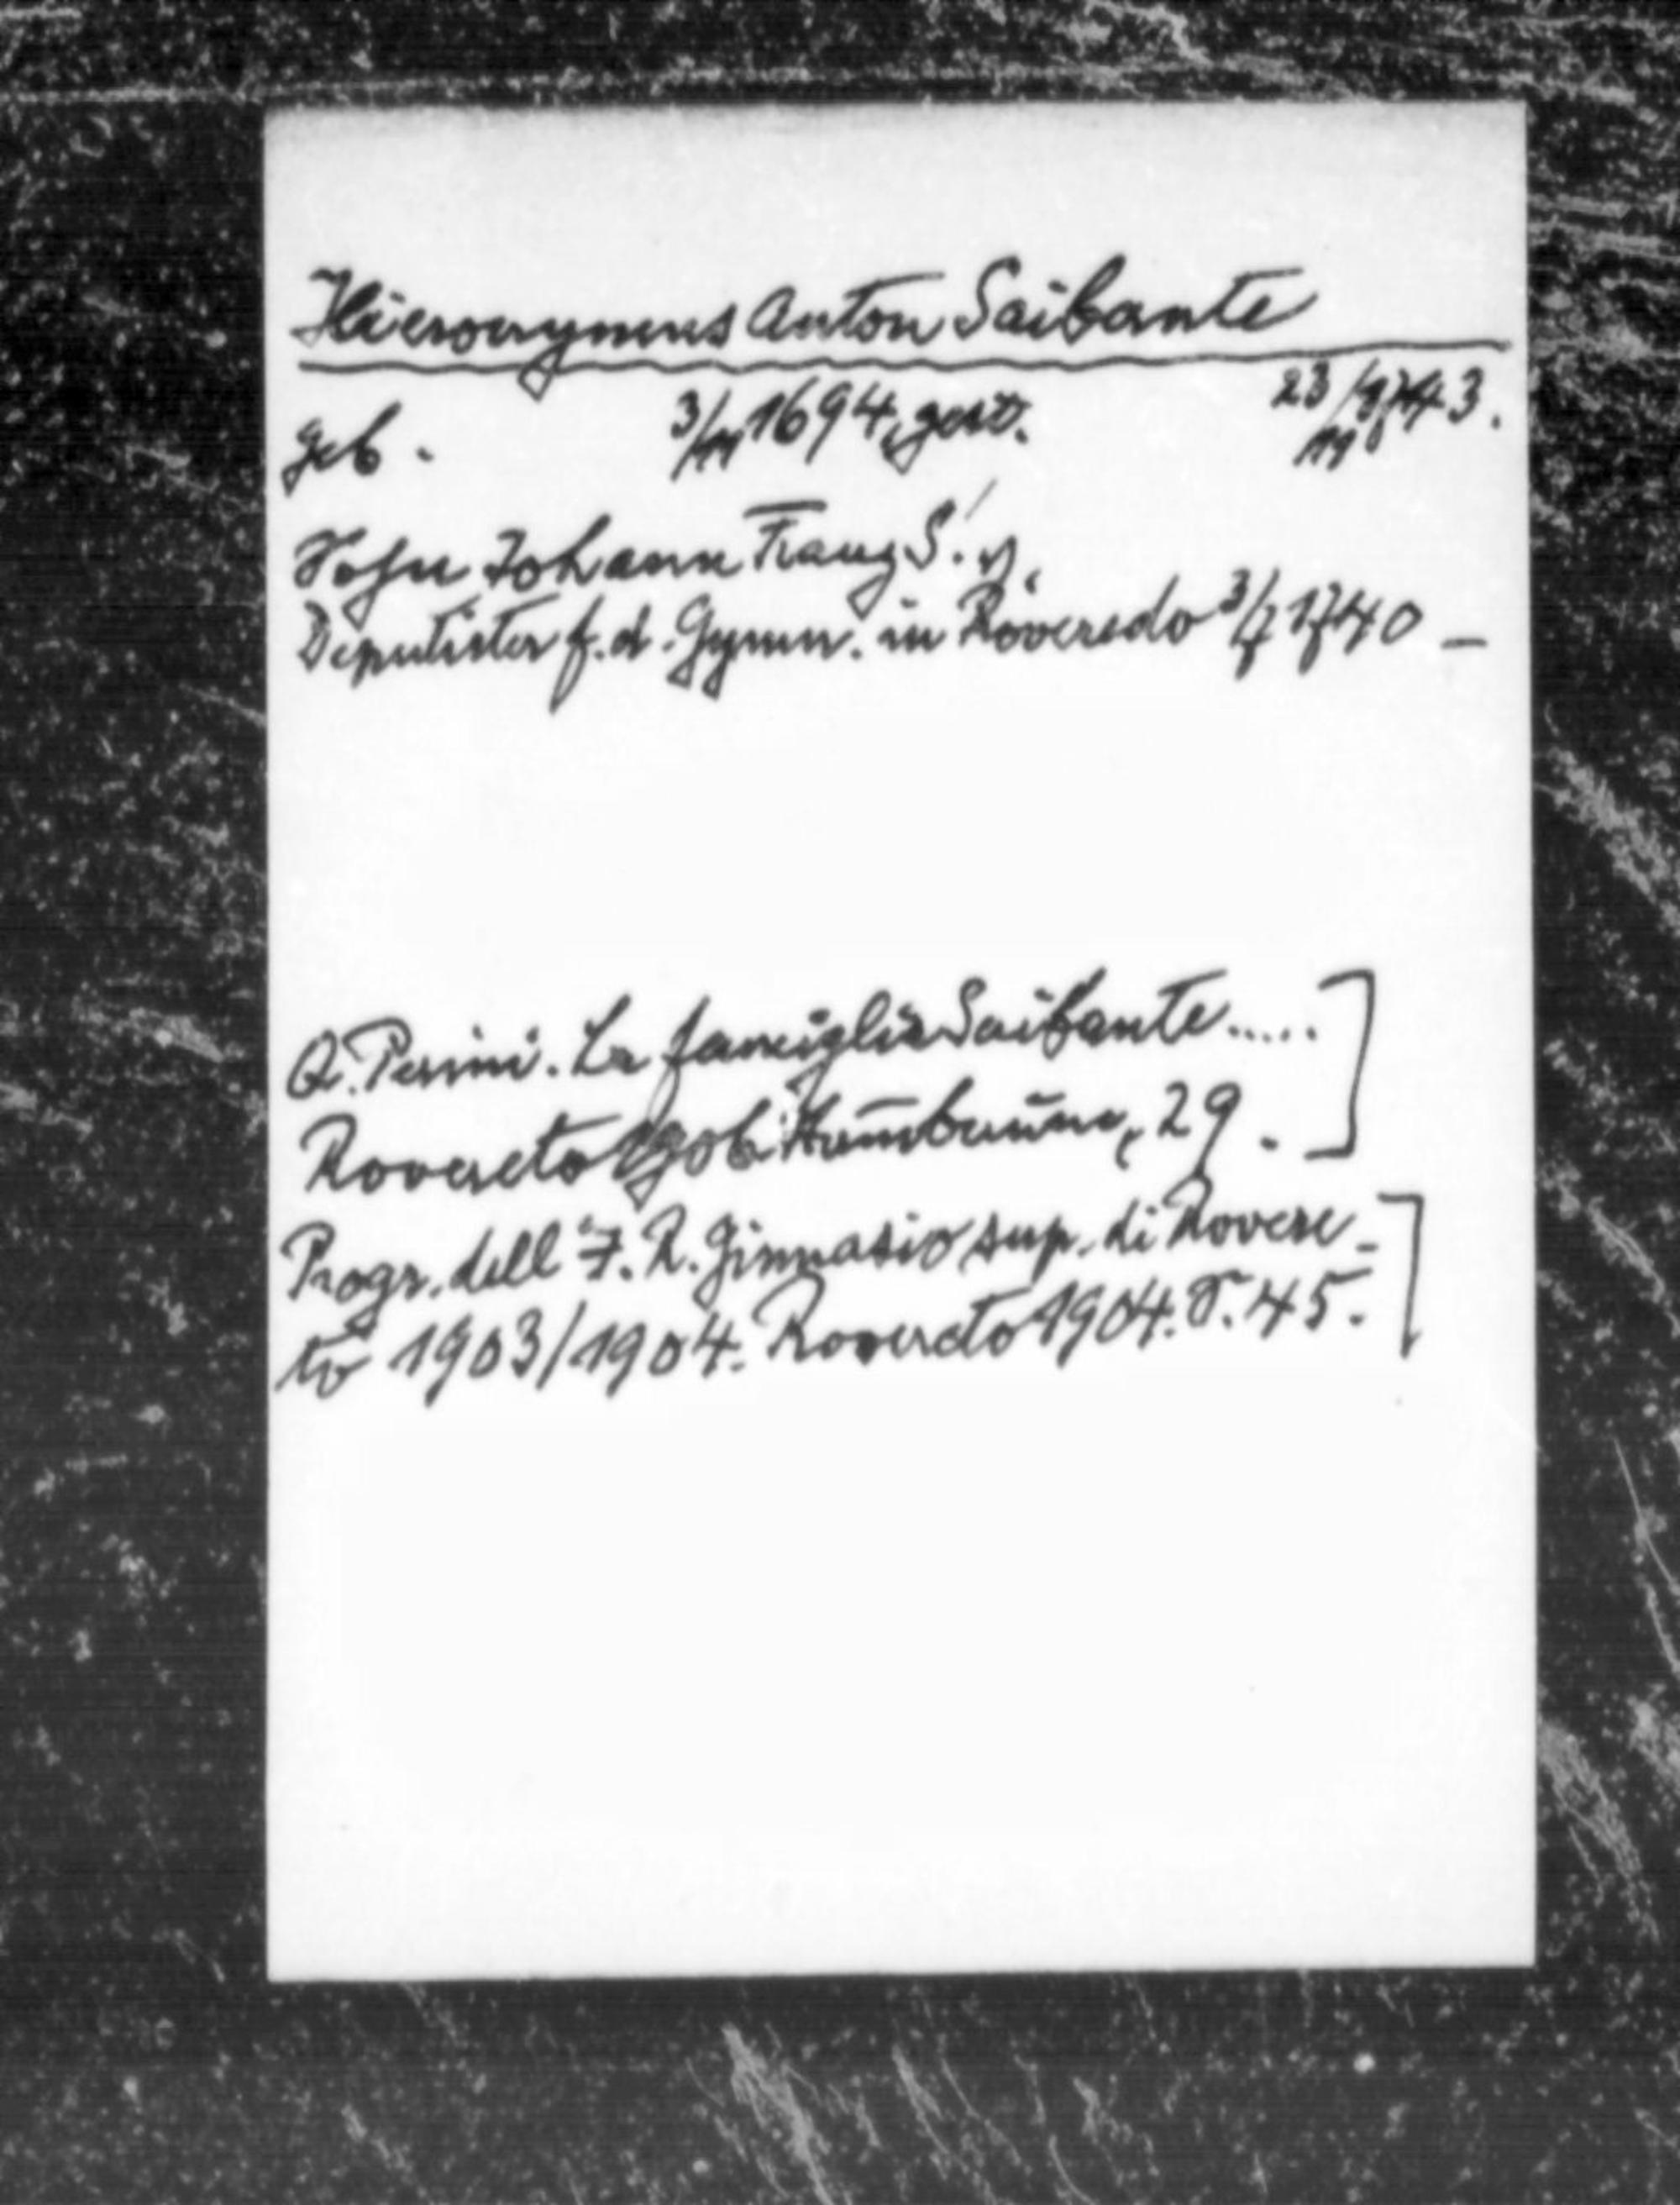 Hieronymus Anton Saibante
geb. 3/11 1694, gest. 23/11 1743.
Sohn Johann Franz S.'s.
Deputirter f. d. Gymn. in Roveredo 3/7 1740 –
Q. Perini. La famiglia Saibante.....
Rovereto 1906. Stammbaum, 29.]
Progr. dell' I. R. Ginnasio sup. di Rovere-
to 1903/1904. Rovereto 1904. S. 45.]